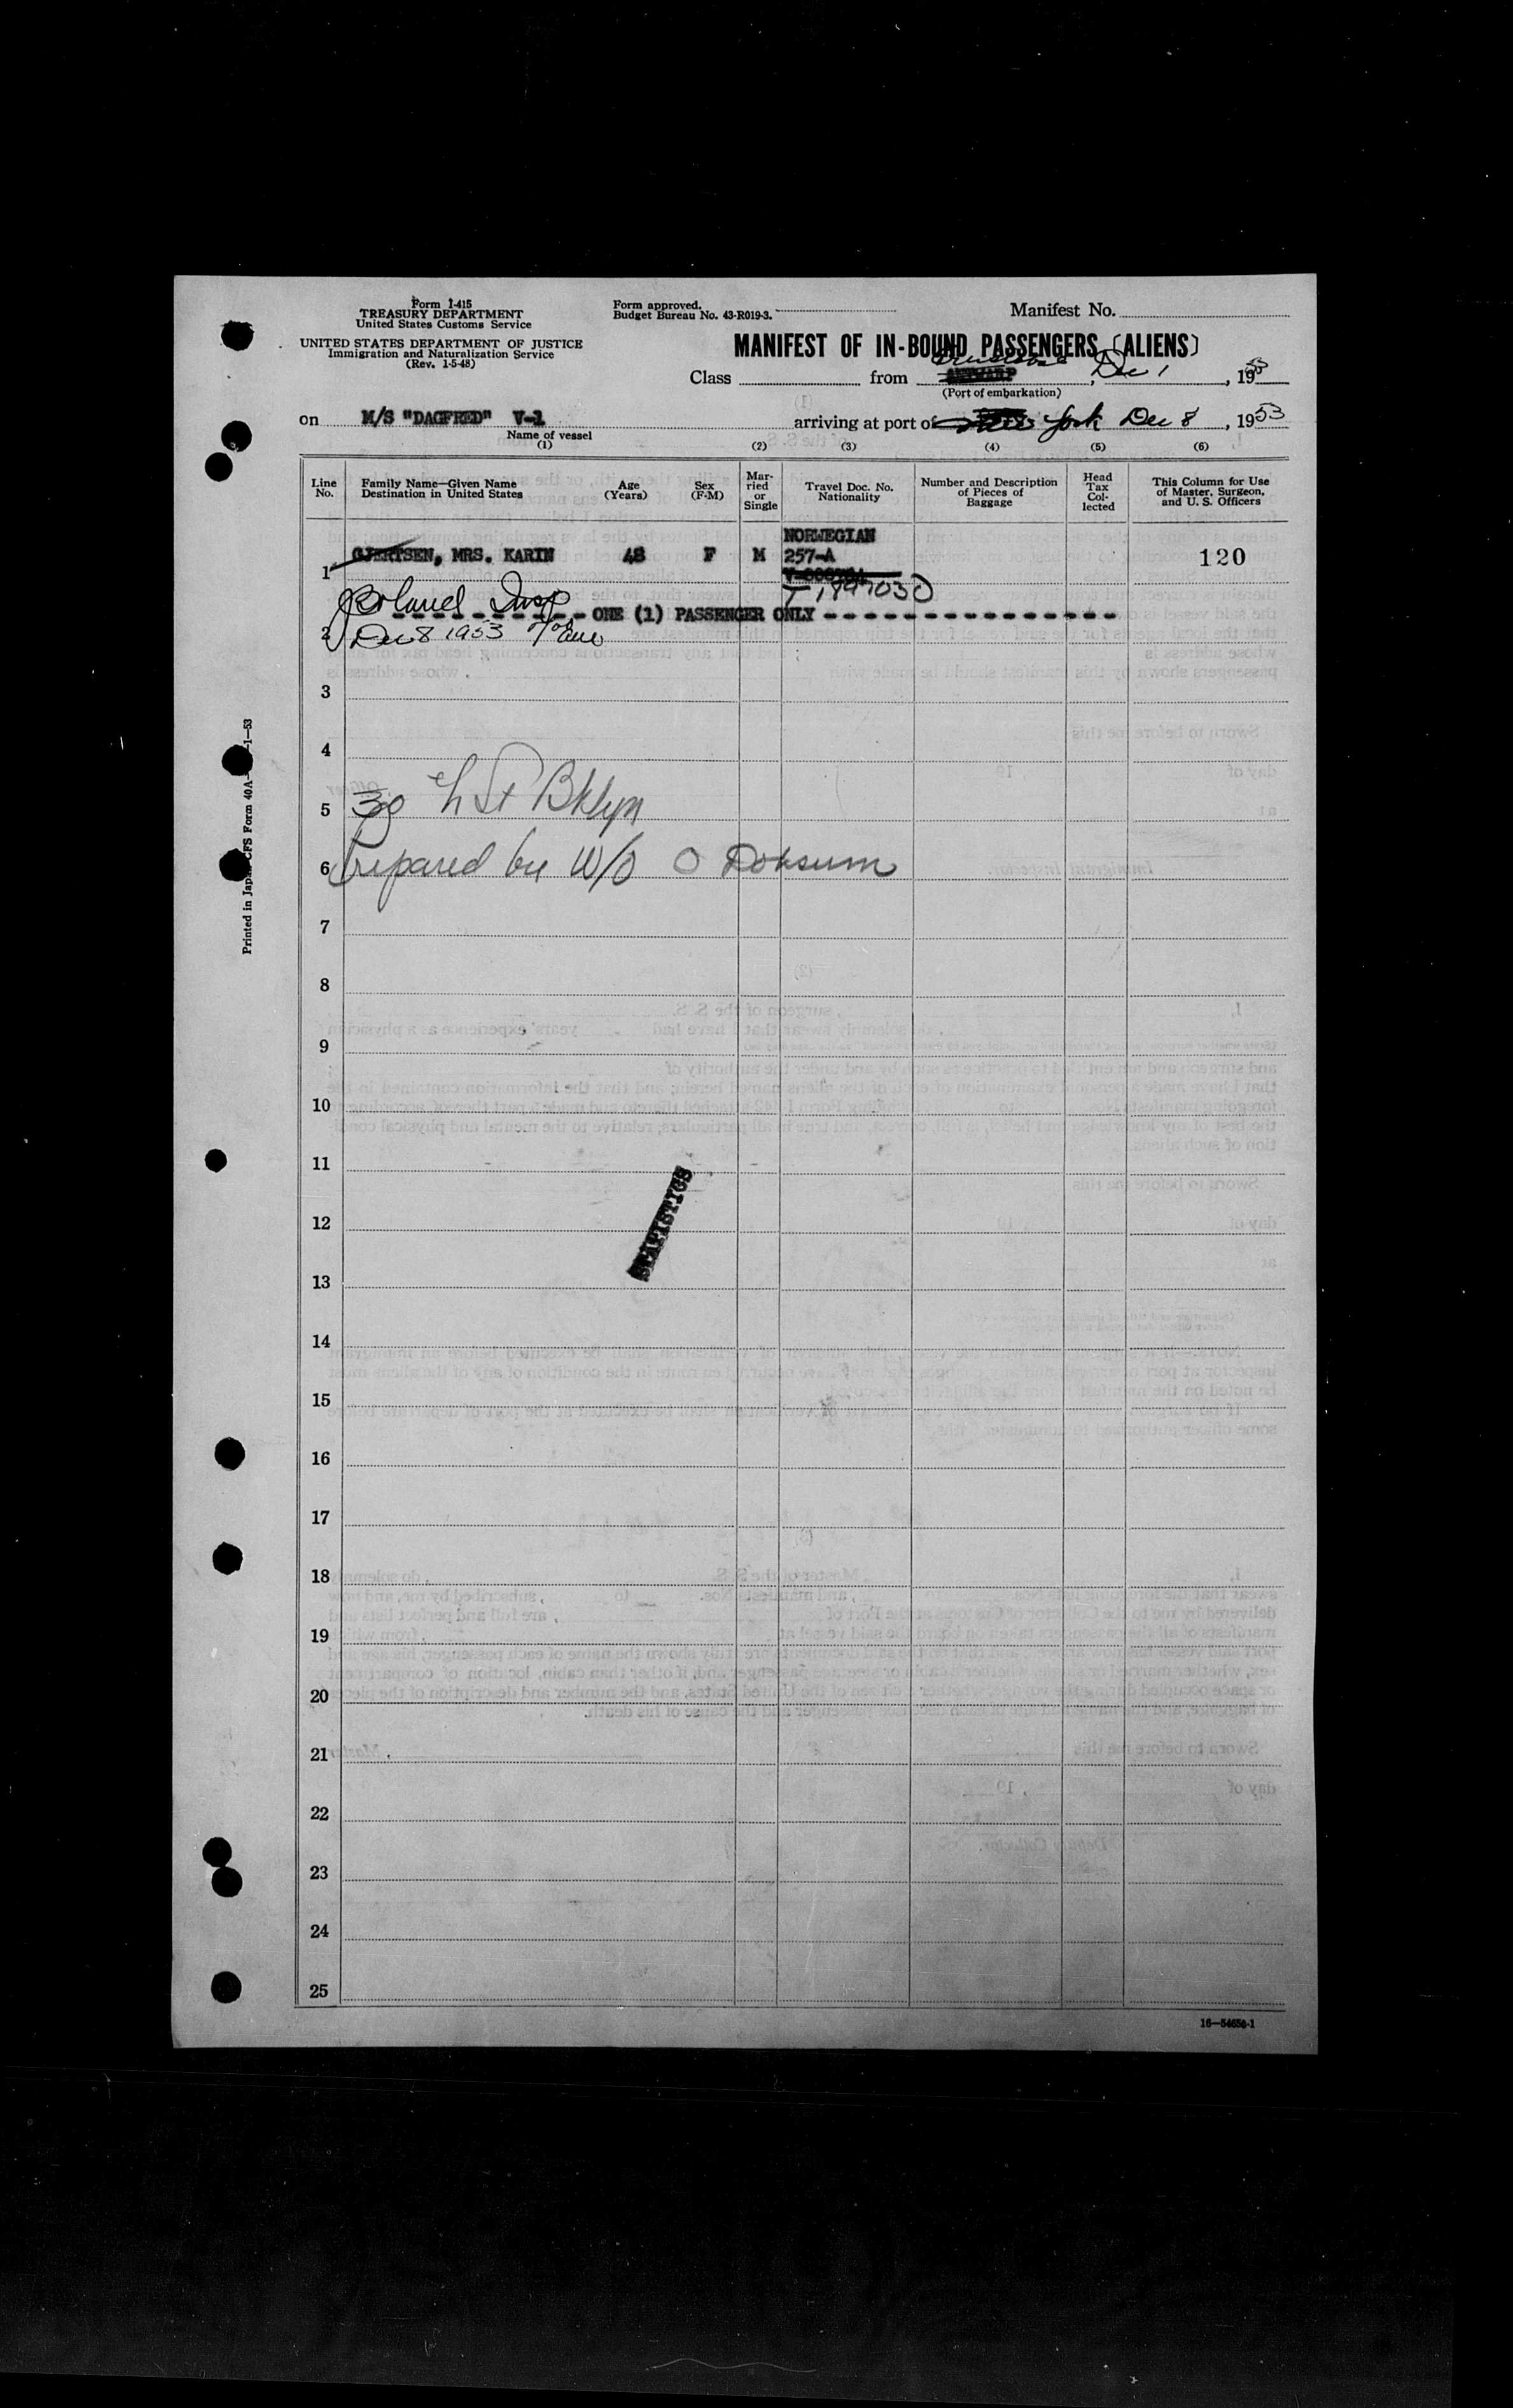 Form I-415
TREASURY DEPARTMENT
United States Customs Service
UNITED STATES DEPARTMENT OF JUSTICE
Immigration and Naturalization Service
(Rev. 1-5-48)
Form approved.
Budget Bureau No. 43-R019-3.
Manifest No.
MANIFEST OF IN-BOUND PASSENGERS (ALIENS)
Class from ANTWARP, Dec 1, 1953
(Port of embarkation)
on M/S "DAGFRED" V-1 arriving at port of York Dec 8, 1953
Name of vessel
(1) (2) (3) (4) (5) (6)
Line No.
Family Name—Given Name
Destination in United States
Age (Years)
Sex (F-M)
Married or Single
Travel Doc. No. Nationality
Number and Description of Pieces of Baggage
Head Tax Collected
This Column for Use of Master, Surgeon, and U. S. Officers
NORWEGIAN
1 GJERTSEN, MRS. KARIN 48 F M 257-A 120
T 1897030
Roland Insp
ONE (1) PASSENGER ONLY
2 Dec 8 1953
3
4
5 30 St Bklyn
6 Prepared by W/O O
7
8
9
10
11
12
STATISTICS
13
14
15
16
17
18
19
20
21
22
23
24
25
16—54650-1
Printed in Japan CFS Form 40A 1—53